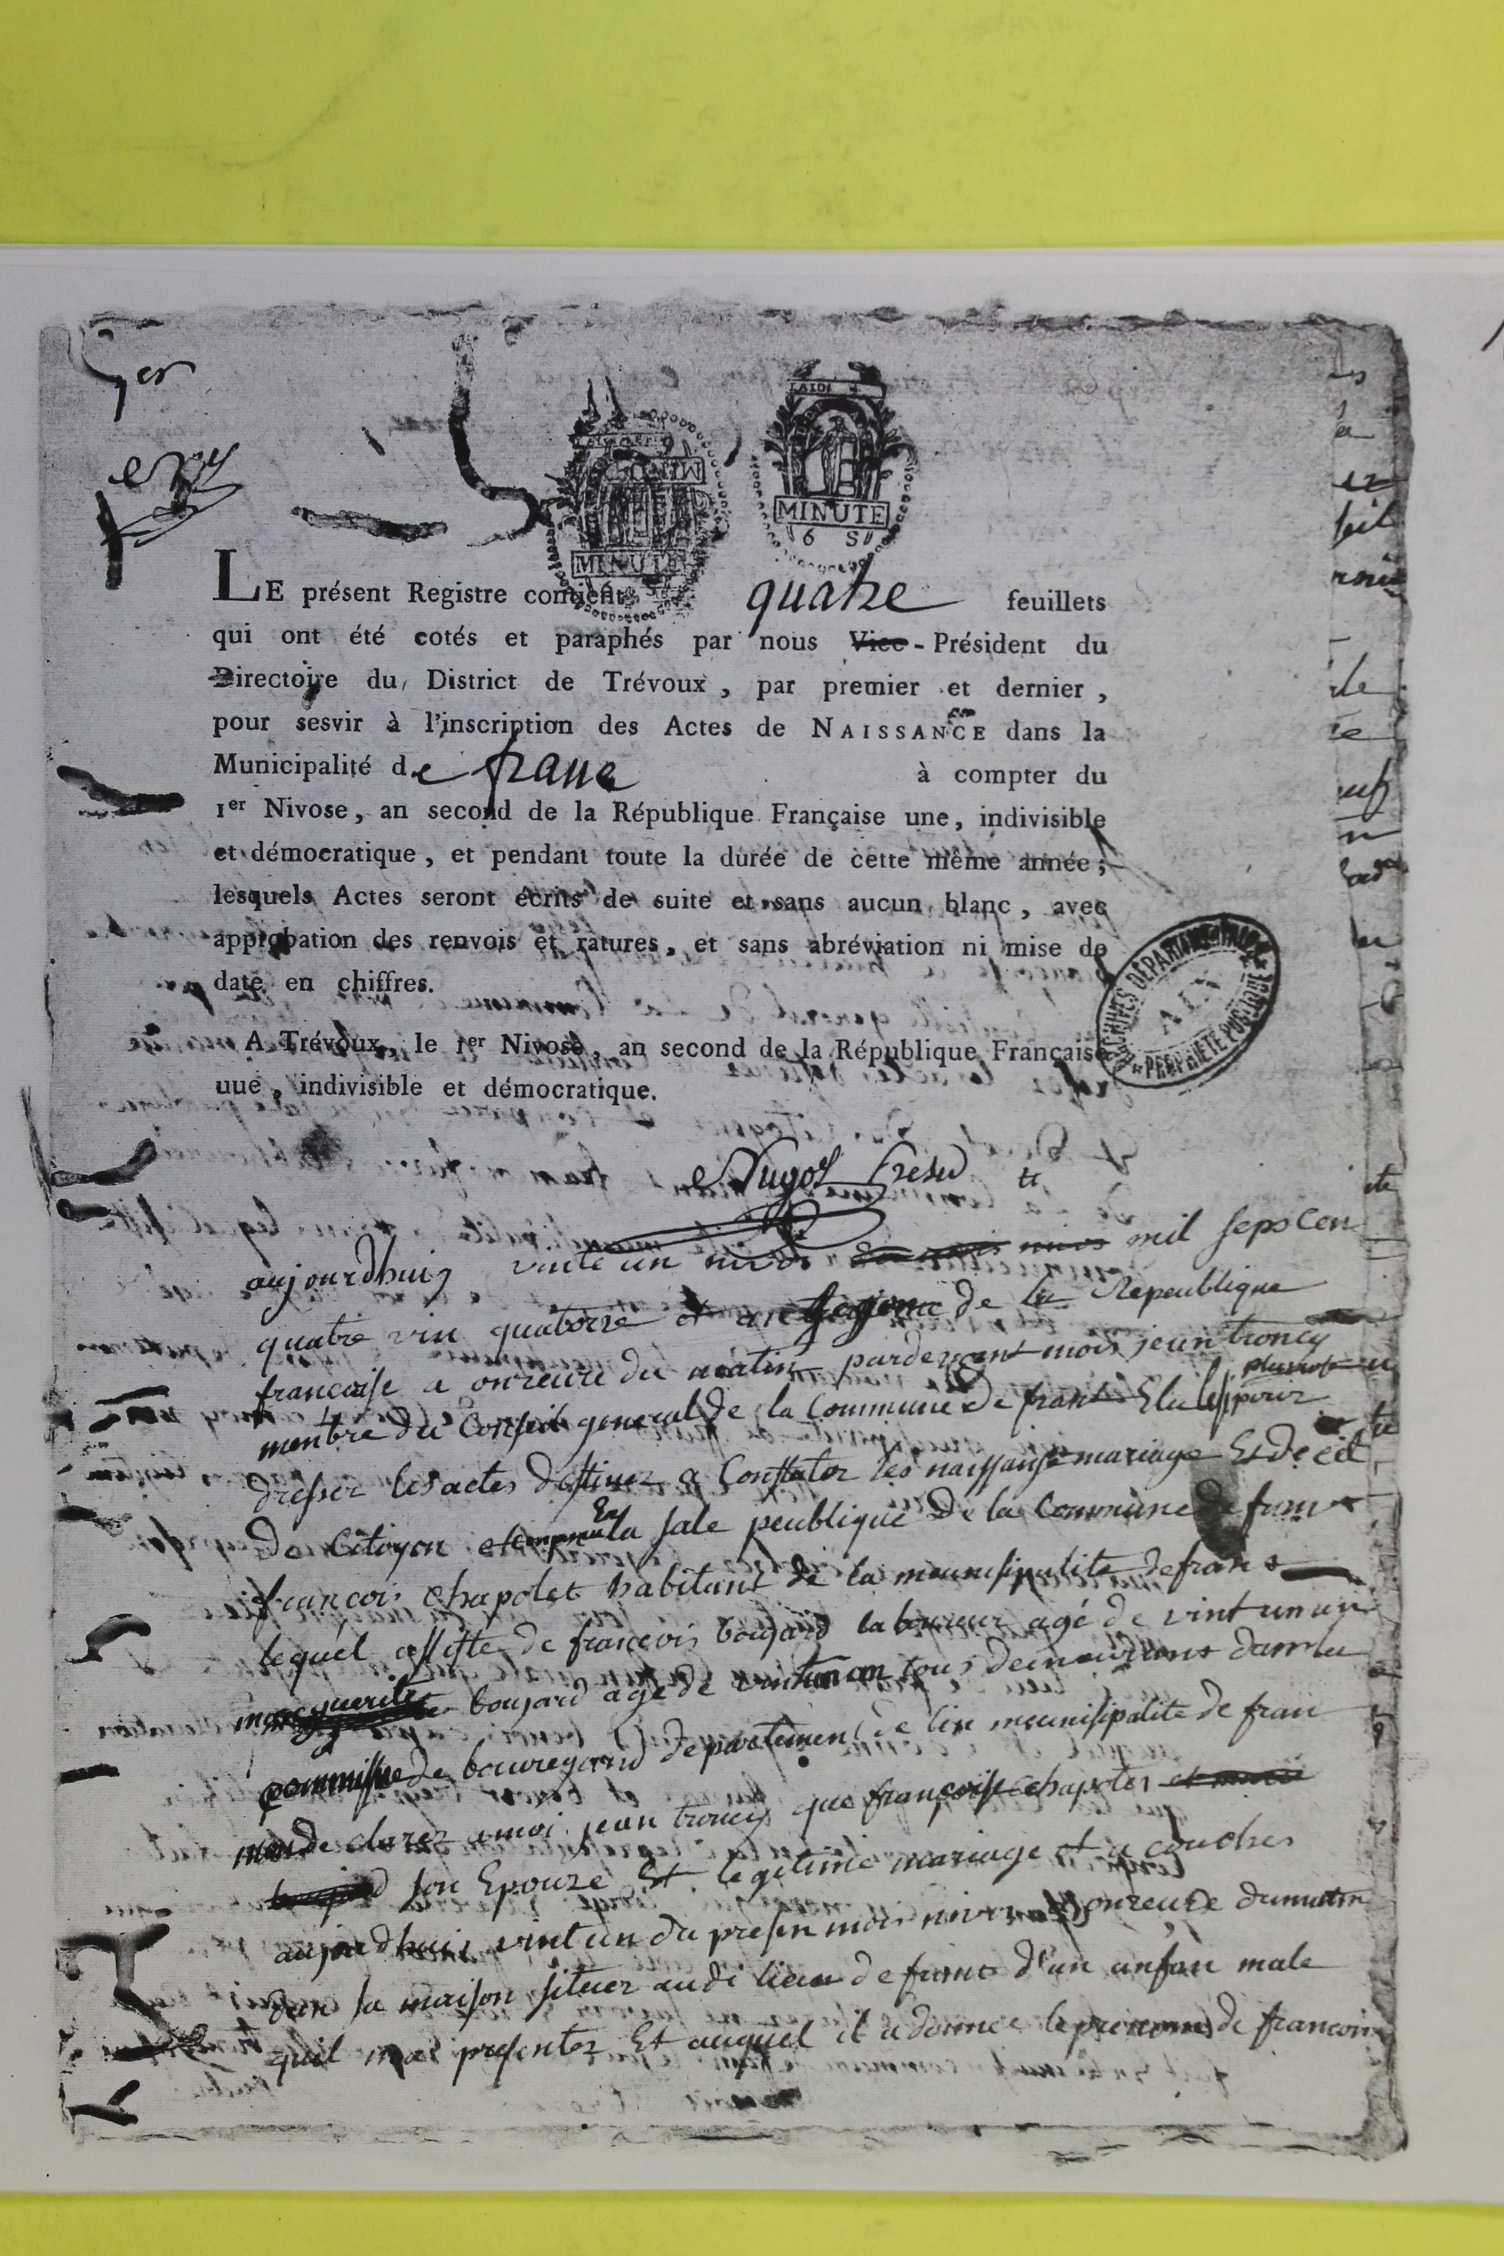 1er
LAIDI 4
MINUTE
MINUTE
6 S
MINUTE
LE présent Registre contient quatre feuillets
qui ont été cotés et paraphés par nous Vice-Président du
Directoire du District de Trévoux, par premier et dernier,
pour sesvir à l'inscription des Actes de NAISSANCE dans la
Municipalité de frans à compter du
1er Nivose, an second de la République Française une, indivisible
et démocratique, et pendant toute la durée de cette même année;
lesquels Actes seront écrits de suite et sans aucun blanc, avec
approbation des renvois et ratures, et sans abréviation ni mise de
date en chiffres.
ARCHIVES DEPARTEMENTALES
AIN
PROPRIETE PUBLIQUE
A Trévoux, le 1er Nivose, an second de la République Française
uue, indivisible et démocratique.
aujourdhuis vinte un nivos mil seps cen
quatre vin quatorze et an de la Repeublique
francaise a onzeure du matin pardevent mois jean troncy
menbre du Conseil general de la Commune de frans Elu le pour
dresser les actes destiner a Constater les naissanse mariage Et deces
de Citoyen En la sale peublique de la Commune de frans
francois chapolet habitant de la meunisipalite de frans
lequel assiste de francois boujard laboureur agé de vint un an
marguerite boujard age de vint un an tous demeurant dans la
commisne de beauregard departement de lin meunisipalite de fran
mon de clarez amoi jean troncy que francoise chapoter
son Epouze Et legitime mariage et a couches
aujourdhuis vint un du presen mois nivos a onzeure du matin
dan sa maison situer audi lieu de frans d'un anfan male
quil ma presenter Et auquel il a donnee le prenoms de francois